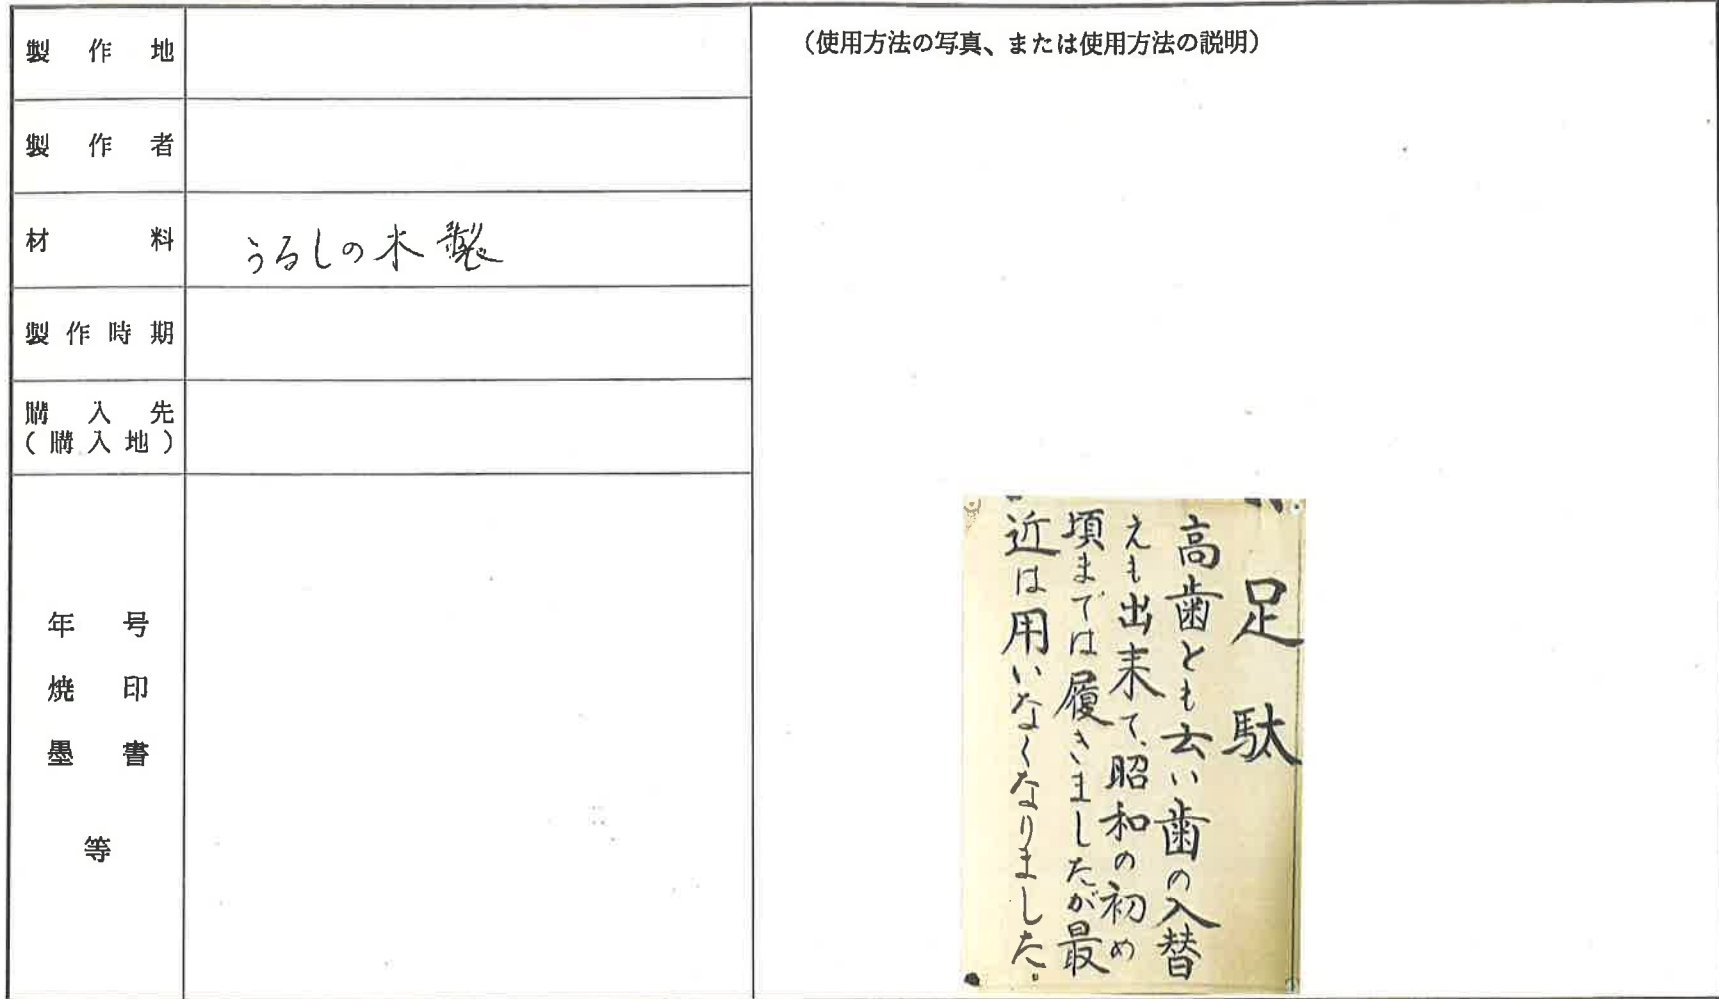 製作地
製作者
材料
うるしの木製
製作時期
購入先
(購入地)
年号
焼印
墨書
等
(使用方法の写真、または使用方法の説明)
足駄
高歯とも云い歯の入替
えも出来て、昭和の初め
頃までは履きましたが最
近は用いなくなりました。